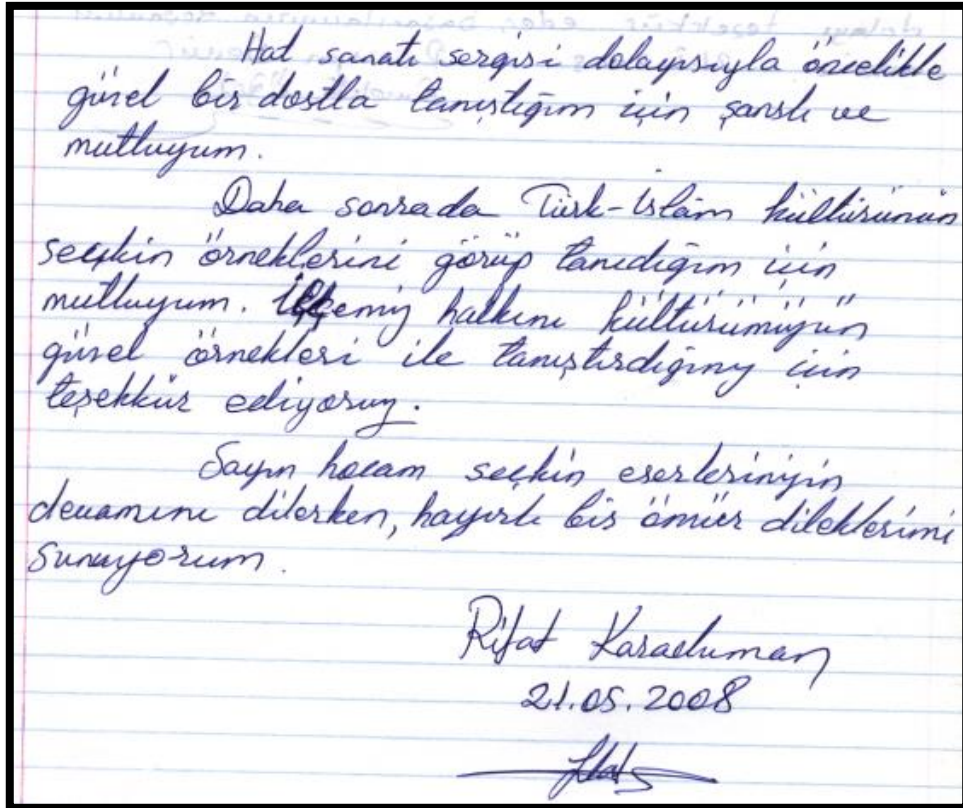 Hat sanatı sergisi dolayısıyla öncelikle
güzel bir dostla tanıştığım için şanslı ve
mutluyum.
Daha sonrada Türk-İslâm kültürünün
seçkin örneklerini görüp tanıdığım için
mutluyum. İlçemiz halkını kültürümüzün
güzel örnekleri ile tanıştırdığınız için
teşekkür ediyoruz.
Sayın hocam seçkin eserlerinizin
devamını dilerken, hayırlı bir ömür dileklerimi
sunuyorum.
Rifat Karaduman
21.05.2008